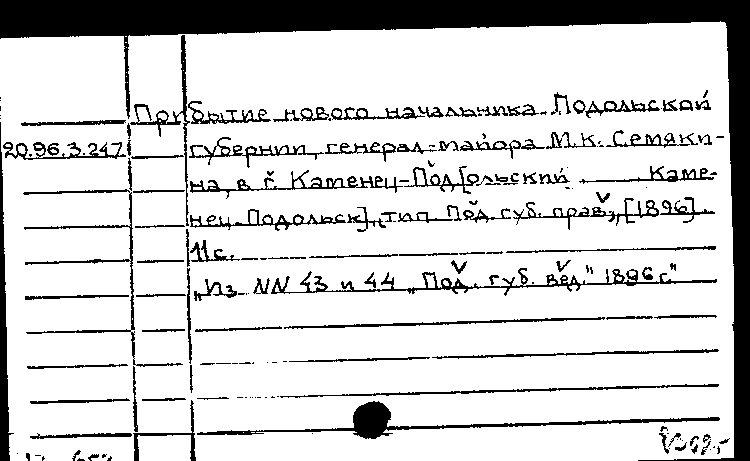 Прибытие нового начальника Подольской
20.96.3.247 губернии, генерал-майора М.К. Семяки-
на, в г. Каменец-Под[ольский. Каме-
нец-Подольск], тип. Под. губ. прав., [1896].
11 с.
„Из NN 43 и 44 „Под. губ. вед." 1896 г."